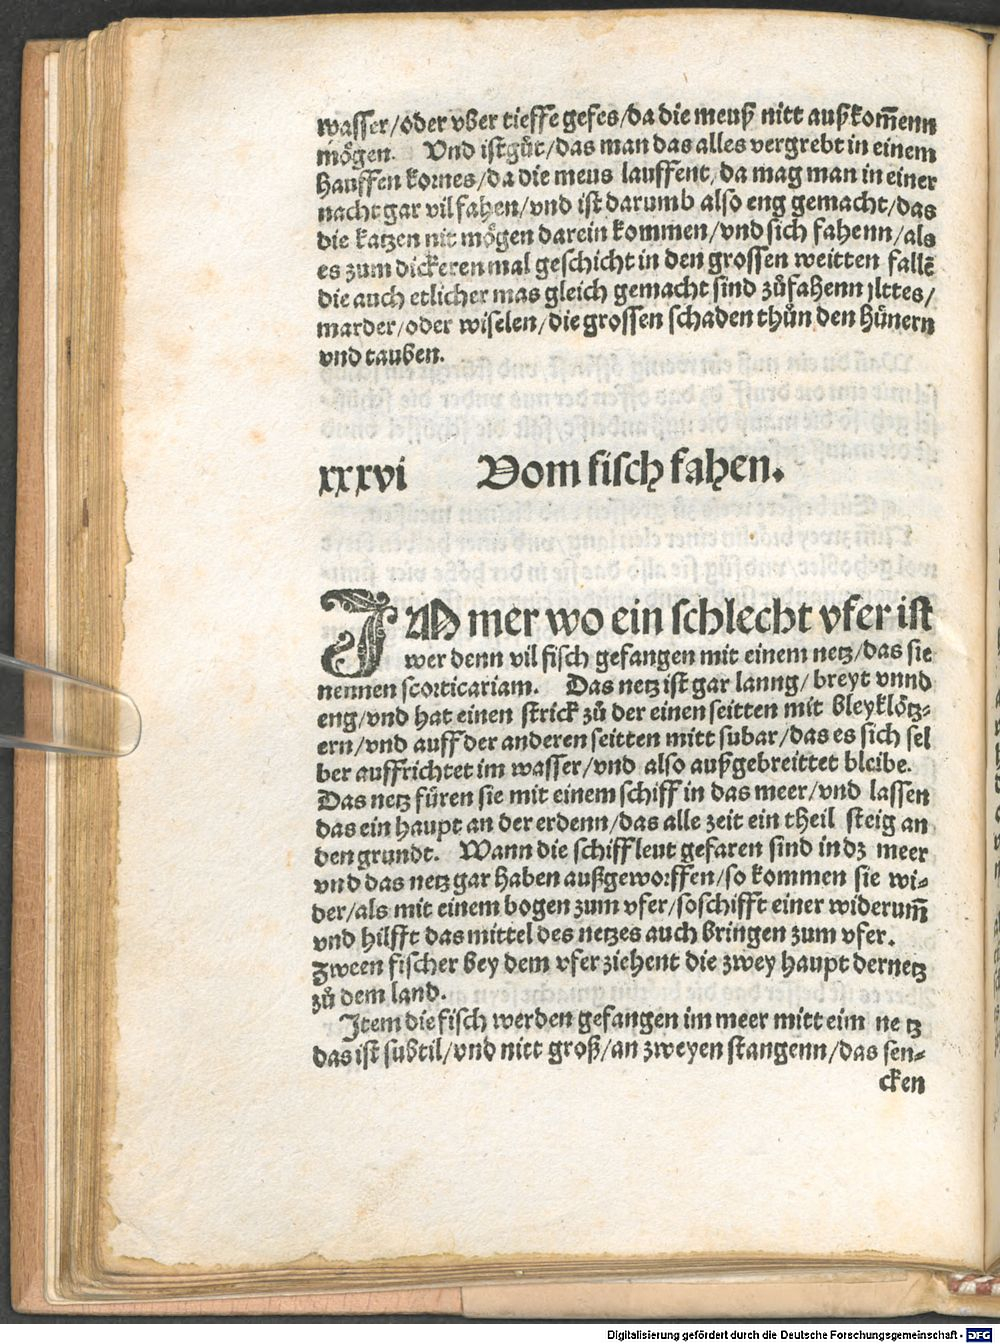 wasser/oder vber tieffe gefes/da die meuß nitt außkom̄enn
mögen. Vnd istgůt/das man das alles vergrebt in einem
hauffen kornes/da die meus lauffent/da mag man in einer
nacht gar vil fahen/vnd ist darumb also eng gemacht/das
die katzen nit mögen darein kommen/vnd sich fahenn/als
es zum dickeren mal geschicht in den grossen weitten fallē
die auch etlicher mas gleich gemacht sind zůfahenn jlttes/
marder/oder wiselen/die grossen schaden thůn den hünern
vnd tauben.
xxxvi Vom fisch fahen.
IM mer wo ein schlecht vfer ist
wer denn vil fisch gefangen mit einem netz/das sie
nennen scorticariam. Das netz ist gar lanng/breyt vnnd
eng/vnd hat einen strick zů der einen seitten mit bleyklötz⸗
ern/vnd auff der anderen seitten mitt subar/das es sich sel
ber auffrichtet im wasser/vnd also außgebreittet bleibe.
Das netz füren sie mit einem schiff in das meer/vnd lassen
das ein haupt an der erdenn/das alle zeit ein theil steig an
den grundt. Wann die schiffleut gefaren sind in dz meer
vnd das netz gar haben außgeworffen/so kommen sie wi⸗
der/als mit einem bogen zum vfer/soschifft einer widerum̄
vnd hilfft das mittel des netzes auch bringen zum vfer.
Zween fischer bey dem vfer ziehent die zwey haupt dernetz
zů dem land.
Item die fisch werden gefangen im meer mitt eim netz
das ist subtil/vnd nitt groß/an zweyen stangenn/das sen⸗
cken
Digitalisierung gefördert durch die Deutsche Forschungsgemeinschaft - DFG